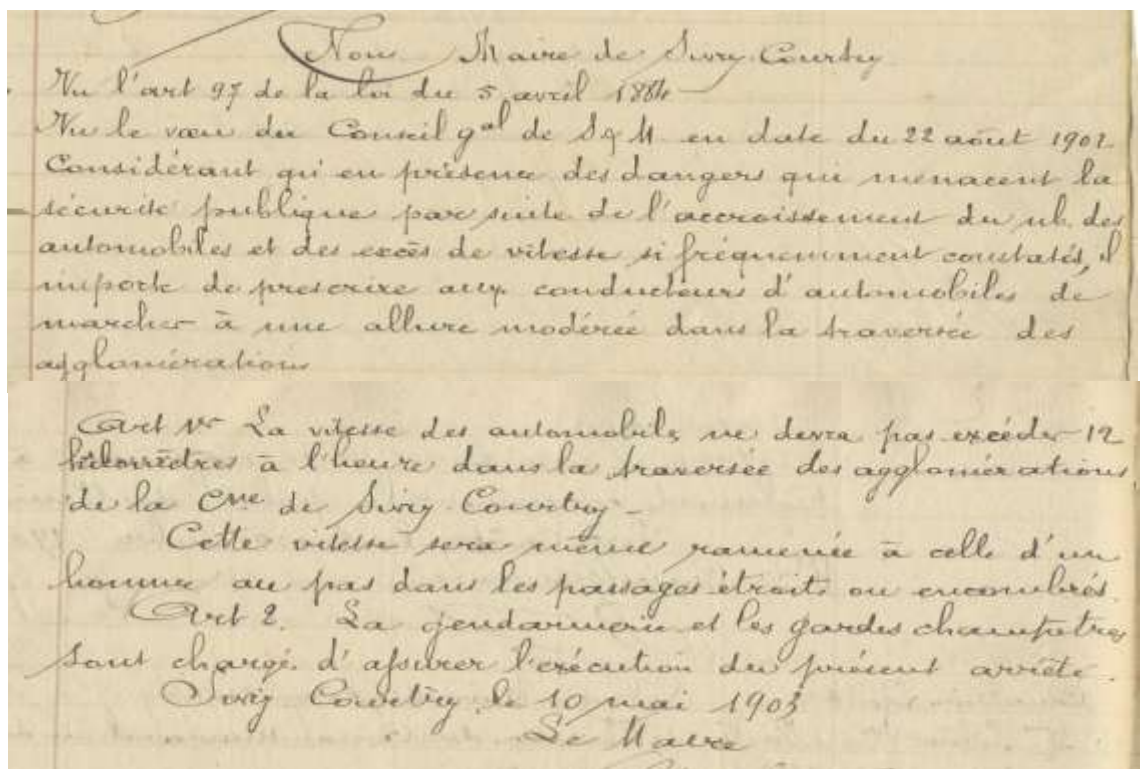 Nous Maire de Sivry-Courtry
Vu l'art 97 de la loi du 5 avril 1884
Vu le vœu du Conseil gal de S & M en date du 22 août 1902
Considérant qu'en présence des dangers qui menacent la
sécurité publique par suite de l'accroissement du nb. des
automobiles et des excès de vitesse si fréquemment constatés, il
importe de prescrire aux conducteurs d'automobiles de
marcher à une allure modérée dans la traversée des
agglomérations
Art 1er La vitesse des automobiles ne devra pas excéder 12
kilomètres à l'heure dans la traversée des agglomérations
de la Cne de Sivry-Courtry
Cette vitesse sera même ramenée à celle d'un
homme au pas dans les passages étroits ou encombrés.
Art 2. La gendarmerie et les gardes champêtres
sont chargés d'assurer l'exécution du présent arrêté.
Sivry Courtry, le 10 mai 1903
Le Maire